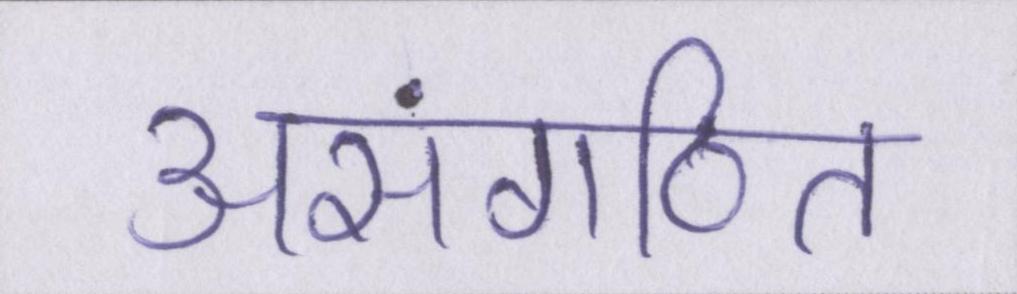 असंगठित